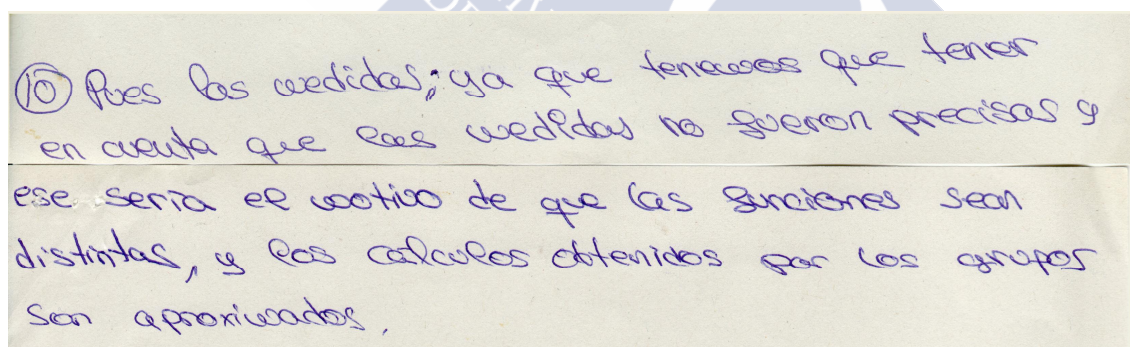 ⑩ Pues las medidas; ya que tenemos que tener
en cuenta que las medidas no fueron precisas y
ese seria el motivo de que las funciones sean
distintas, y los calculos obtenidos por los grupos
son aproximados.